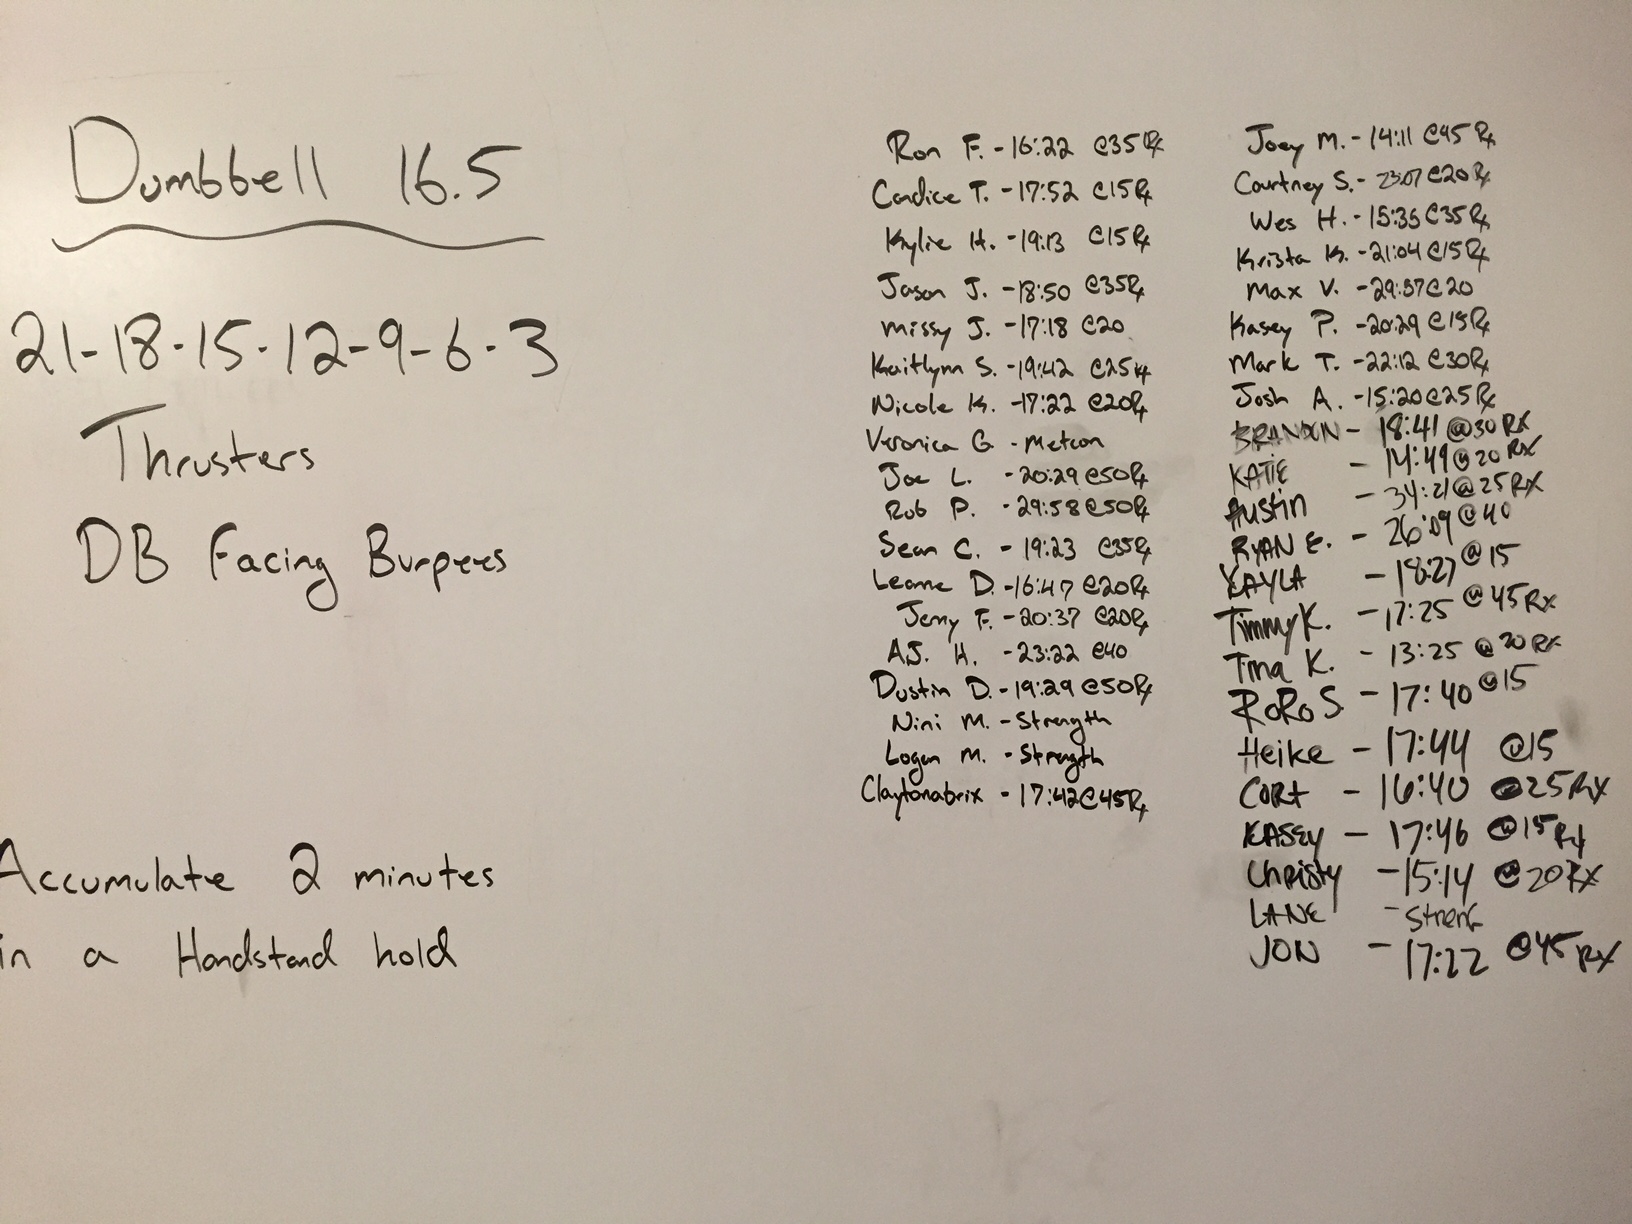 Dumbbell 16.5
21-18-15-12-9-6-3
Thrusters
DB Facing Burpees
Accumulate 2 minutes
in a Handstand hold
Ron F. - 16:22 @35 Rx
Candice T. - 17:52 @15 Rx
Kylie H. - 19:13 @15 Rx
Jason J. - 18:50 @35 Rx
Missy J. - 17:18 @20
Kaitlynn S. - 19:42 @25
Nicole K. - 17:22 @20 Rx
Veronica G - Metcon
Joe L. - 20:29 @50 Rx
Rob P. - 29:58 @50 Rx
Sean C. - 19:23 @35 Rx
Leanne D. - 16:47 @20 Rx
Jerry F. - 20:37 @20 Rx
A.J. H. - 23:22 @40
Dustin D. - 19:29 @50 Rx
Nini M. - Strength
Logan M. - Strength
Claytonabrix - 17:42 @45 Rx
Joey M. - 14:11 @45 Rx
Courtney S. - 23:07 @20 Rx
Wes H. - 15:35 @35 Rx
Krista K. - 21:04 @15 Rx
Max V. - 29:57 @20
Kasey P. - 20:29 @15 Rx
Mark T. - 22:12 @30 Rx
Josh A. - 15:20 @25 Rx
BRANDON - 18:41 @30 RX
KATIE - 14:49 @20 RX
Austin - 34:21 @25 RX
RYAN E. - 26:09 @40
KAYLA - 18:27 @15
Timmy K. - 17:25 @45 Rx
Tina K. - 13:25 @20 Rx
RoRo S. - 17:40 @15
Heike - 17:44 @15
CORT - 16:40 @25 RX
KASEY - 17:46 @15 Rx
Christy - 15:14 @20 RX
LANE - Streng
JON - 17:22 @45 RX